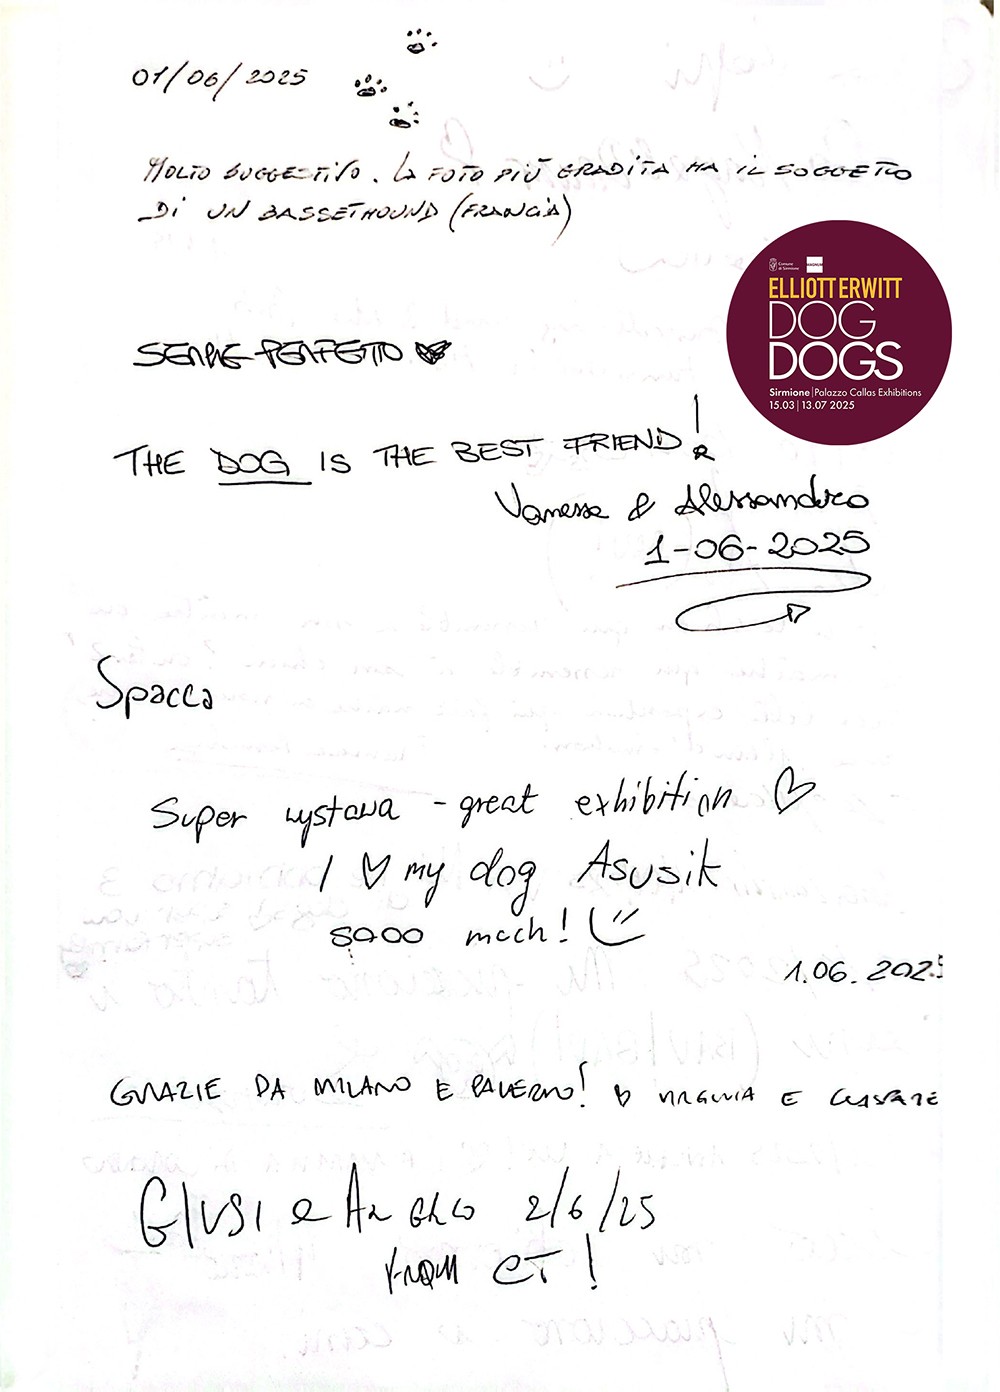 01/06/2025
MOLTO SUGGESTIVO. LA FOTO PIÙ GRADITA HA IL SOGGETTO
DI UN BASSETHOUND (FRANCIA)
Comune
di Sirmione
MAGNUM
ELLIOTT ERWITT
DOG
DOGS
Sirmione | Palazzo Callas Exhibitions
15.03 | 13.07 2025
SEMPRE PERFETTO
THE DOG IS THE BEST FRIEND!
Vanessa & Alessandro
1-06-2025
Spacca
Super wystawa - great exhibition ♡
I ♡ my dog Asusik
soooo mcch!
1.06.2025
GRAZIE DA MILANO E PALERMO! ♡ VIRGINIA E
GIUSI e ANGELO 2/6/25
FROM CT!